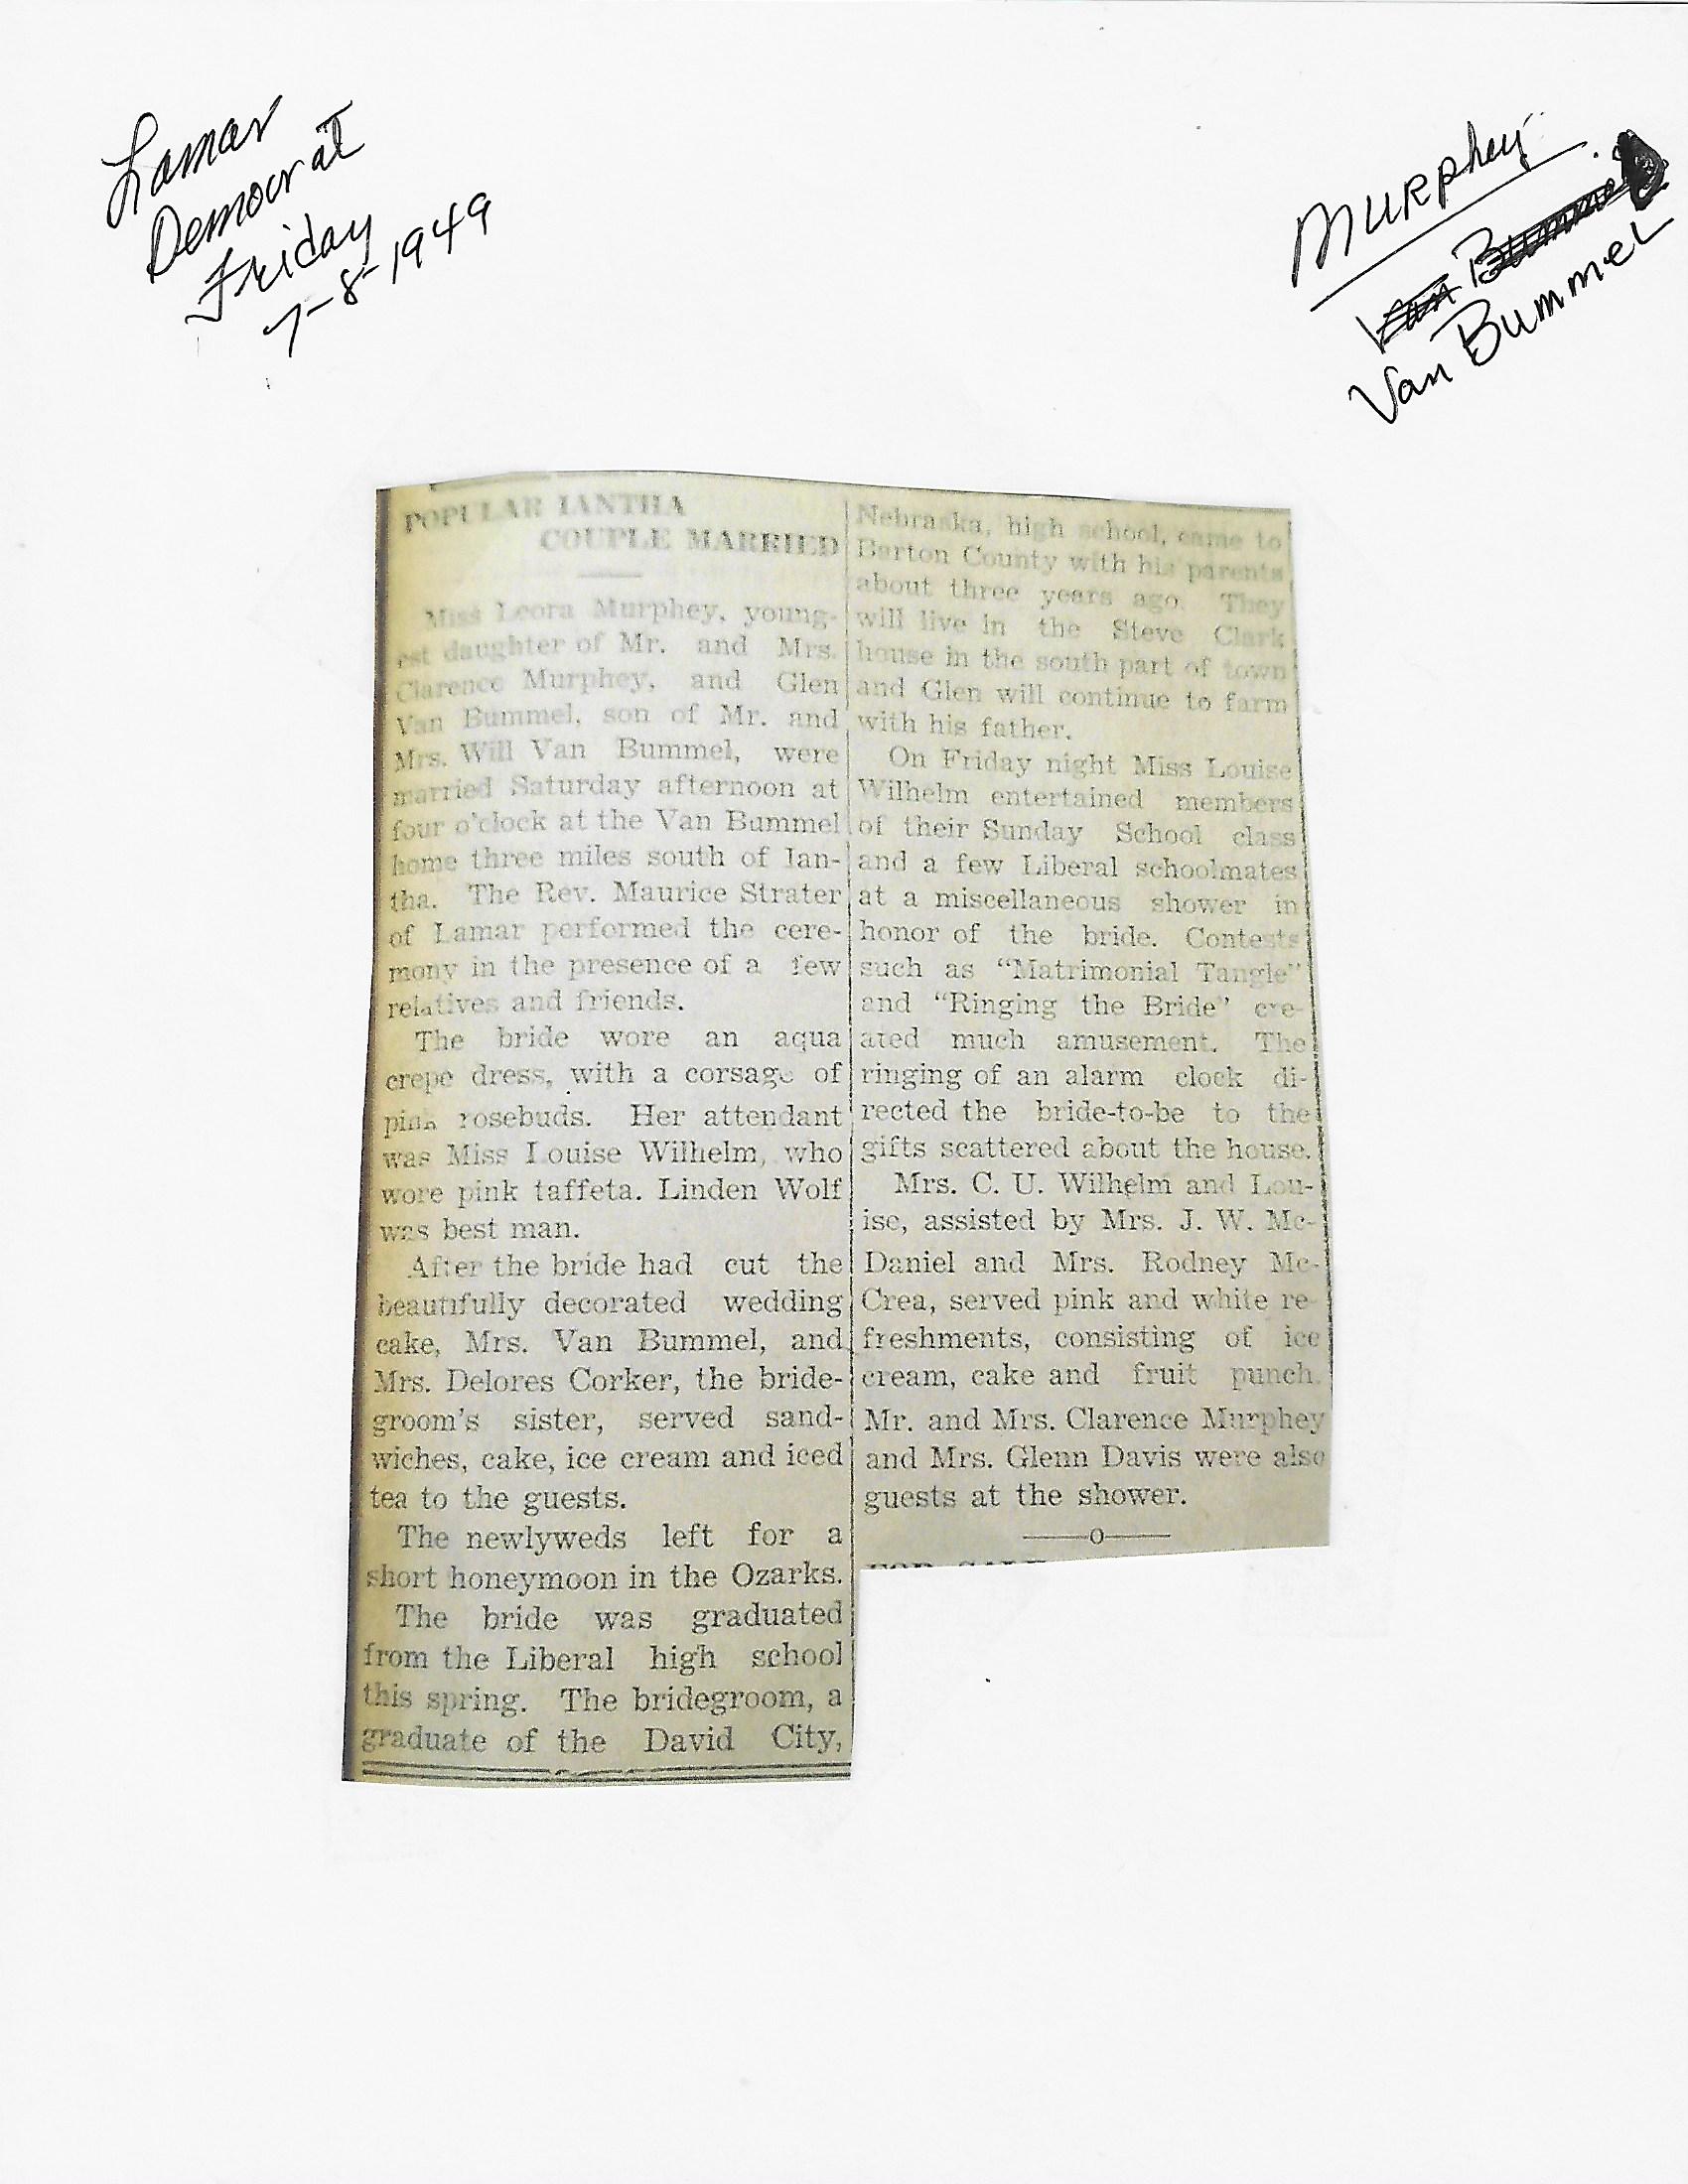 Lamar
Democrat
Friday
7-8-1949
Murphey
Van Bummel
Van Bummel
POPULAR IANTHA
COUPLE MARRIED
Miss Leora Murphey, young-
est daughter of Mr. and Mrs.
Clarence Murphey, and Glen
Van Bummel, son of Mr. and
Mrs. Will Van Bummel, were
married Saturday afternoon at
four o'clock at the Van Bummel
home three miles south of Ian-
tha. The Rev. Maurice Strater
of Lamar performed the cere-
mony in the presence of a few
relatives and friends.
The bride wore an aqua
crepe dress, with a corsage of
pink rosebuds. Her attendant
was Miss Louise Wilhelm, who
wore pink taffeta. Linden Wolf
was best man.
After the bride had cut the
beautifully decorated wedding
cake, Mrs. Van Bummel, and
Mrs. Delores Corker, the bride-
groom's sister, served sand-
wiches, cake, ice cream and iced
tea to the guests.
The newlyweds left for a
short honeymoon in the Ozarks.
The bride was graduated
from the Liberal high school
this spring. The bridegroom, a
graduate of the David City,
Nebraska, high school, came to
Barton County with his parents
about three years ago. They
will live in the Steve Clark
house in the south part of town
and Glen will continue to farm
with his father.
On Friday night Miss Louise
Wilhelm entertained members
of their Sunday School class
and a few Liberal schoolmates
at a miscellaneous shower in
honor of the bride. Contests
such as "Matrimonial Tangle"
and "Ringing the Bride" cre-
ated much amusement. The
ringing of an alarm clock di-
rected the bride-to-be to the
gifts scattered about the house.
Mrs. C. U. Wilhelm and Lou-
ise, assisted by Mrs. J. W. Mc-
Daniel and Mrs. Rodney Mc-
Crea, served pink and white re-
freshments, consisting of ice
cream, cake and fruit punch.
Mr. and Mrs. Clarence Murphey
and Mrs. Glenn Davis were also
guests at the shower.
—o—